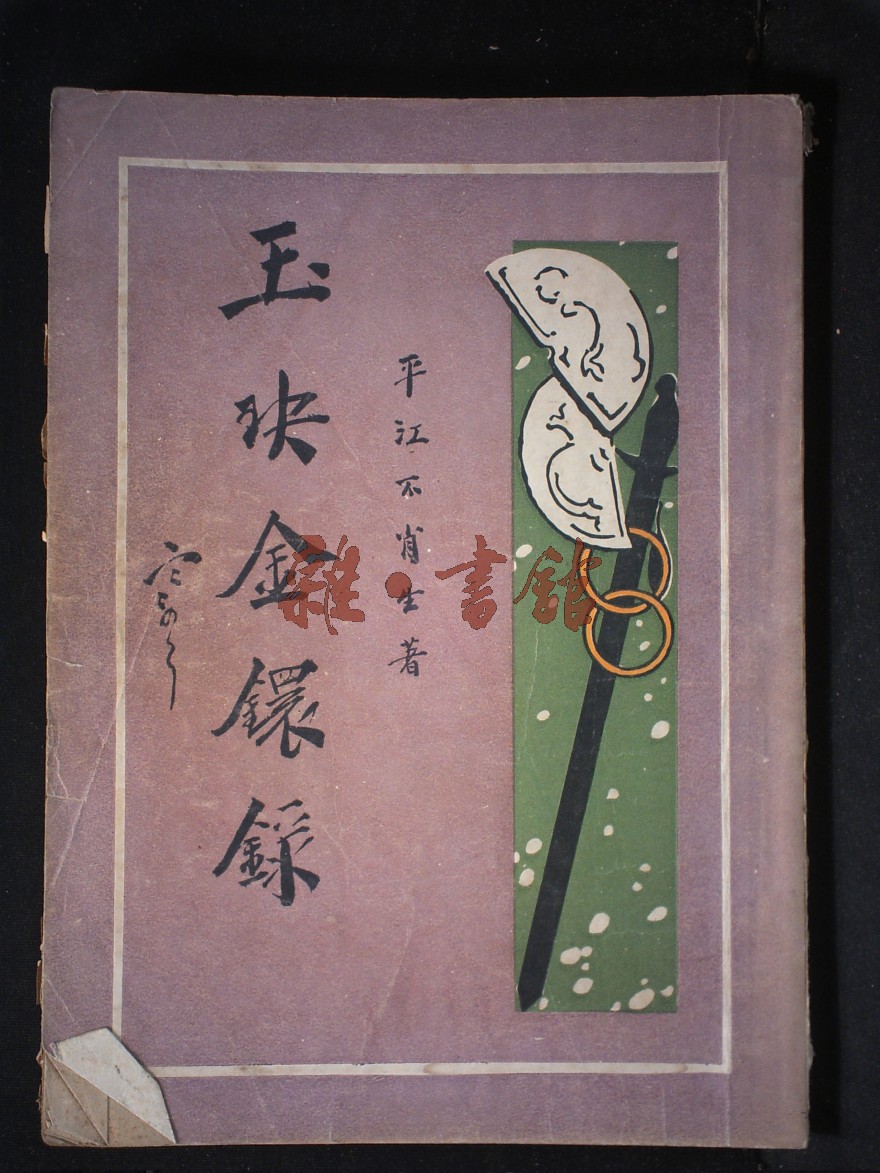 平江不肖生著
玉玦金鐶錄
雜·書館